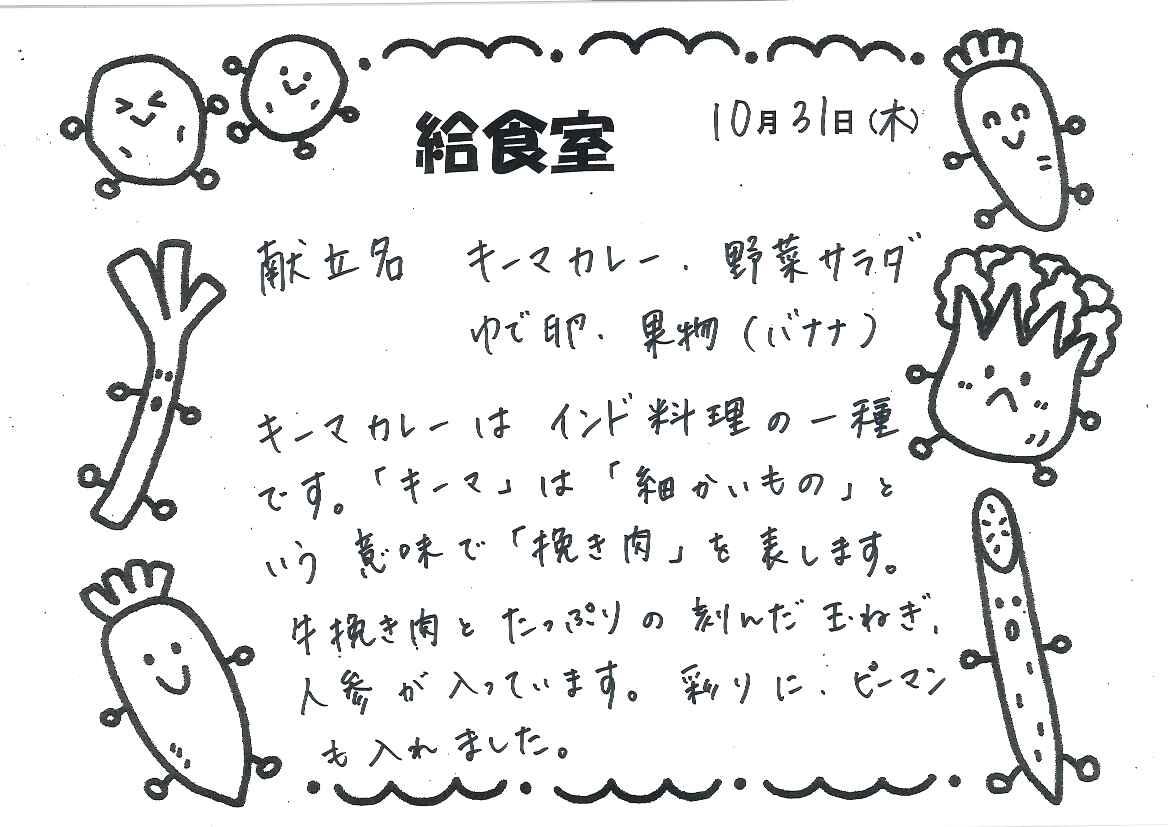 給食室 10月31日(木)
献立名 キーマカレー、野菜サラダ
ゆで卵、果物(バナナ)
キーマカレーは インド料理の一種
です。「キーマ」は「細かいもの」と
いう意味で「挽き肉」を表します。
牛挽き肉とたっぷりの刻んだ玉ねぎ、
人参が入っています。彩りに、ピーマン
も入れました。